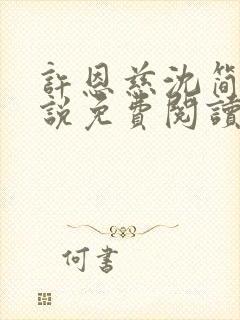 許恩慈沈簡
說免費閱讀
何書